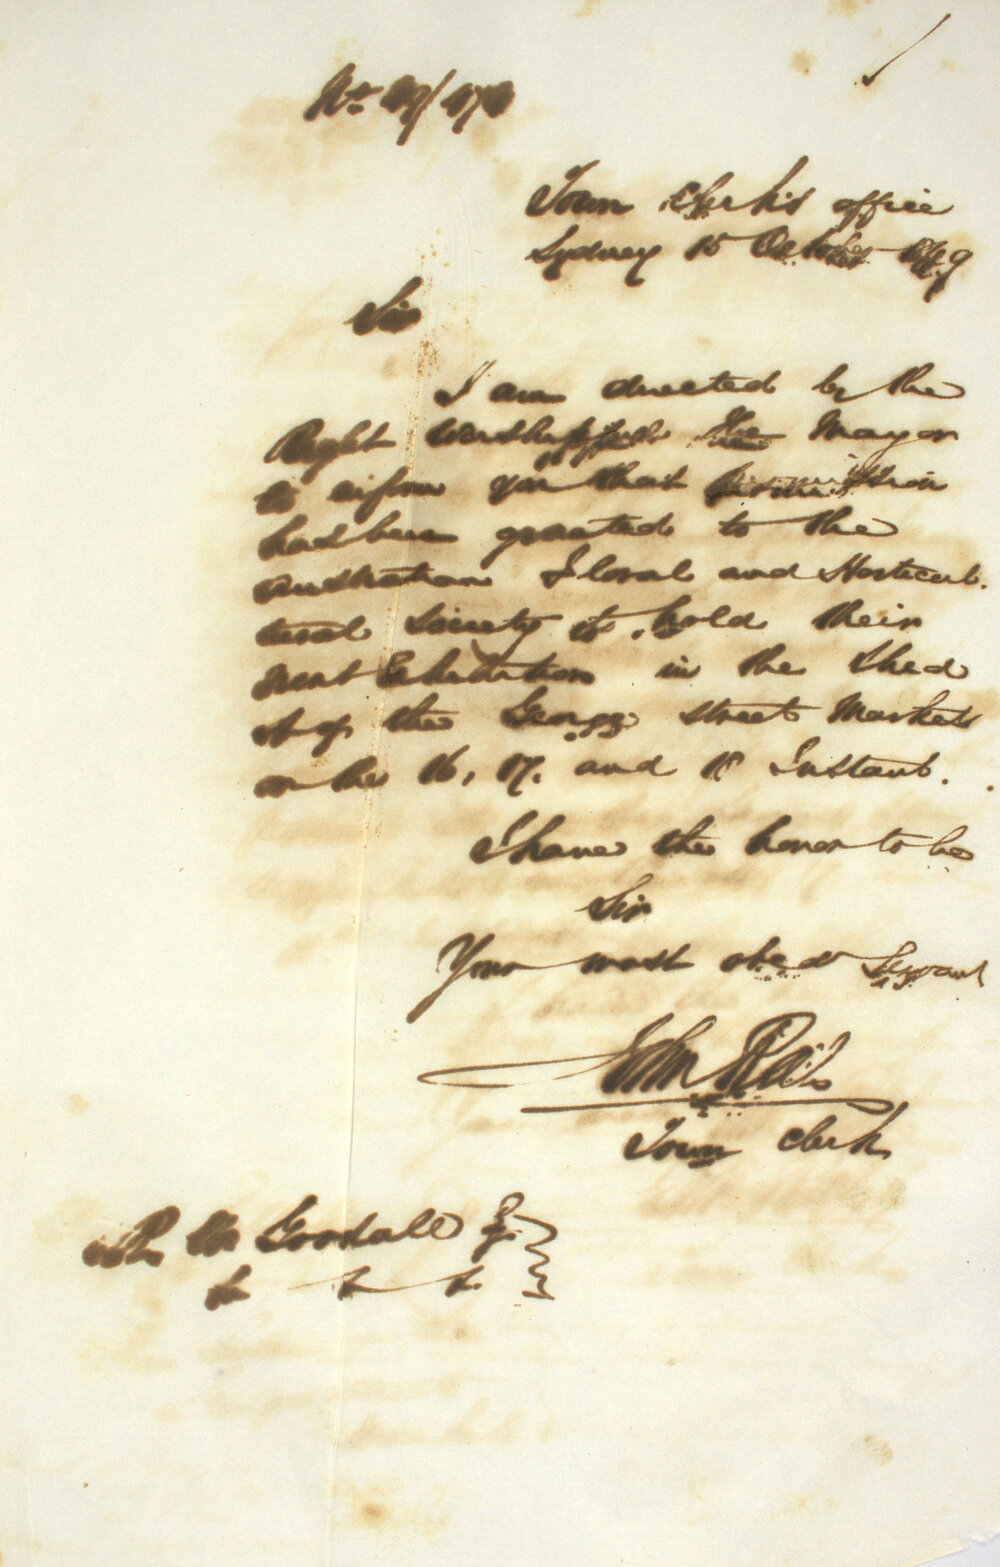 Town Clerk's office
Sydney 15 October 1849
Sir
I am directed by the
Right Worshipful The Mayor
to inform you that permission
has been granted to the
Australian Floral and Horticul.
tural Society to hold their
next Exhibition in the Shed
of the George street Markets
on the 16, 17. and 18 Instant.
I have the honor to be
Sir
Your most obed Servant
John
Town Clerk
Goodall Esq.